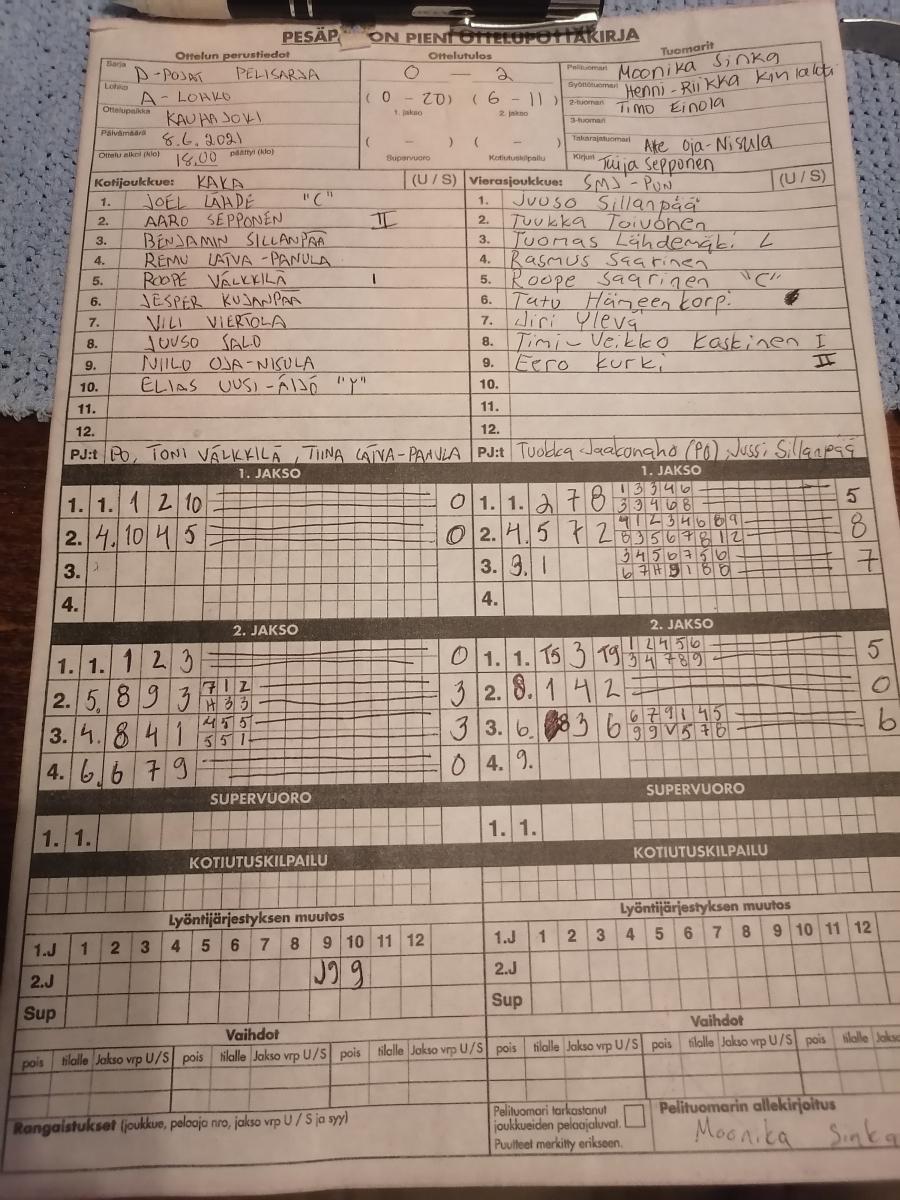 PESÄP ON PIENI OTTELUPÖYTÄKIRJA
Ottelun perustiedot
Ottelutulos
Tuomarit
Sarja D-POJAT PELISARJA
Lohko A-LOHKO
Ottelupaikka KAUHAJOKI
Päivämäärä 8.6.2021
Ottelu alkoi (klo) 18.00 päättyi (klo)
0 - 2
(0 - 20) (6 - 11)
1. jakso 2. jakso
( - ) ( - )
Supervuoro Kotiutuskilpailu
Pelituomari Moonika Sinka
Syöttötuomari Henni-Riikka
2-tuomari Timo Einola
3-tuomari
Takarajatuomari Ake Oja-Nisula
Kirjuri Tuija Sepponen
Kotijoukkue: KAKA (U / S)
1. JOEL LÄHDE "C"
2. AARO SEPPONEN II
3. BENJAMIN SILLANPÄÄ
4. REMU LATVA-PANULA
5. ROOPE VÄLKKILÄ I
6. JESPER KUJANPÄÄ
7. VILI VIERTOLA
8. JUUSO SALO
9. NIILO OJA-NISULA
10. ELIAS UUSI-ÄIJÖ "Y"
11.
12.
PJ:t PO, TONI VÄLKKILÄ, TIINA LATVA-PANULA
Vierasjoukkue: SMJ-PUN (U / S)
1. Juuso Sillanpää
2. Tuukka Toivonen
3. Tuomas Lähdemäki L
4. Rasmus Saarinen
5. Roope Saarinen "C"
6. Tatu Hämeenkorpi
7. Jiri Ylevä
8. Timi-Veikko Kaskinen I
9. Eero Kurki II
10.
11.
12.
PJ:t Tuukka Jaakonaho (PO), Jussi Sillanpää
1. JAKSO
1. 1. 1 2 10 0
2. 4. 10 4 5 0
3.
4.
1. JAKSO
1. 1. 2 7 8 1 3 3 4 6 5
3 3 4 6 8
2. 4. 5 7 2 9 1 2 3 4 6 8 9 8
8 3 5 6 7 8 1 2
3. 3. 1 3 4 5 6 7 5 6 7
6 7 H 9 1 8 8
4.
2. JAKSO
1. 1. 1 2 3 0
2. 5. 8 9 3 7 1 2 3
H 3 3
3. 4. 8 4 1 4 5 5 3
5 5 1
4. 6. 6 7 9 0
2. JAKSO
1. 1. T5 3 T9 1 2 4 5 6 5
3 4 7 8 9
2. 8. 1 4 2 0
3. 6. 8 3 6 6 7 9 1 4 5 6
9 9 V 5 7 8
4. 9.
SUPERVUORO
1. 1.
SUPERVUORO
1. 1.
KOTIUTUSKILPAILU
KOTIUTUSKILPAILU
Lyöntijärjestyksen muutos
1.J 1 2 3 4 5 6 7 8 9 10 11 12
2.J J9 9
Sup
Lyöntijärjestyksen muutos
1.J 1 2 3 4 5 6 7 8 9 10 11 12
2.J
Sup
Vaihdot
pois tilalle Jakso vrp U / S pois tilalle Jakso vrp U / S pois tilalle Jakso vrp U / S
Vaihdot
pois tilalle Jakso vrp U / S pois tilalle Jakso vrp U / S pois tilalle Jakso
Rangaistukset (joukkue, pelaaja nro, jakso vrp U / S ja syy)
Pelituomari tarkastanut
joukkueiden pelaajaluvat.
Puutteet merkitty erikseen.
Pelituomarin allekirjoitus
Moonika Sinka